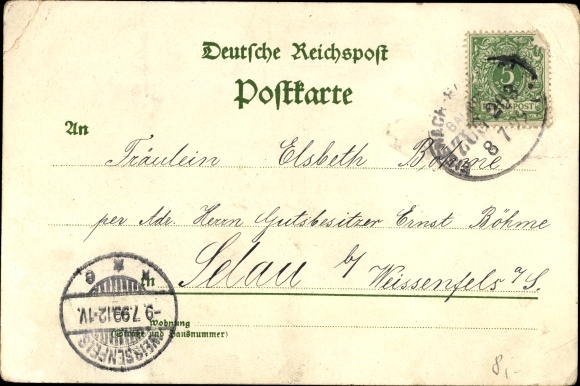 Deutsche Reichspost
Postkarte
5
An
Fräulein Elsbeth Böhme
per Adr. Herrn Gutsbesitzer Ernst Böhme
in Selau b/ Weissenfels a/S.
Wohnung
(Straße und Hausnummer)
WEISSENFELS
-9.7.99.12-1V.
ZUG
8 7
8,-